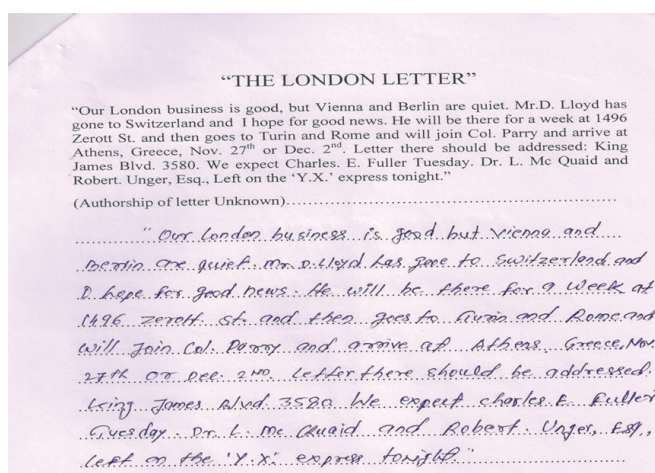 “THE LONDON LETTER”
“Our London business is good, but Vienna and Berlin are quiet. Mr.D. Lloyd has
gone to Switzerland and I hope for good news. He will be there for a week at 1496
Zerott St. and then goes to Turin and Rome and will join Col. Parry and arrive at
Athens, Greece, Nov. 27th or Dec. 2nd. Letter there should be addressed: King
James Blvd. 3580. We expect Charles. E. Fuller Tuesday. Dr. L. Mc Quaid and
Robert. Unger, Esq., Left on the ‘Y.X.’ express tonight.”
(Authorship of letter Unknown)..........................................................
" Our London business is good but Vienna and
Berlin are quiet. Mr. D. Lloyd has gone to Switzerland and
I hope for good news. He will be there for a week at
1496 Zerott. St. and then goes to Turin and Rome and
will Join Col. Parry and arrive at Athens, Greece, Nov.
27th or Dec. 2ND. Letter there should be addressed.
King James Blvd 3580 We expect charles. E. Fuller
Tuesday. Dr. L. Mc Quaid and Robert. Unger, Esq.,
Left on the 'Y.X.' express tonight."